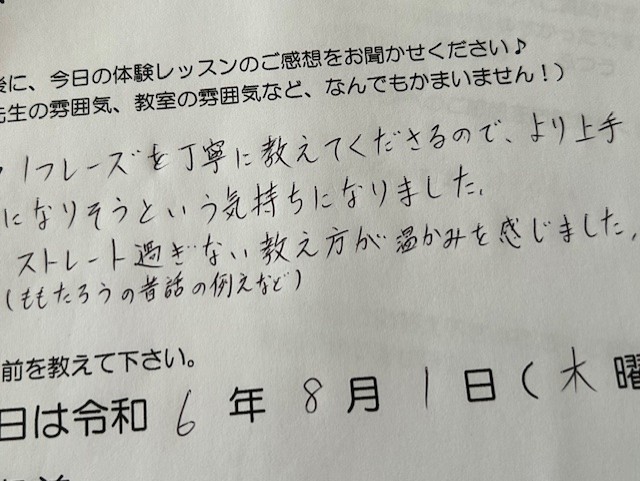 後に、今日の体験レッスンのご感想をお聞かせください♪
先生の雰囲気、教室の雰囲気など、なんでもかまいません！）
1フレーズを丁寧に教えてくださるので、より上手
になりそうという気持ちになりました。
ストレート過ぎない教え方が温かみを感じました。
（ももたろうの昔話の例えなど）
前を教えて下さい。
日は令和 6 年 8 月 1 日（木 曜